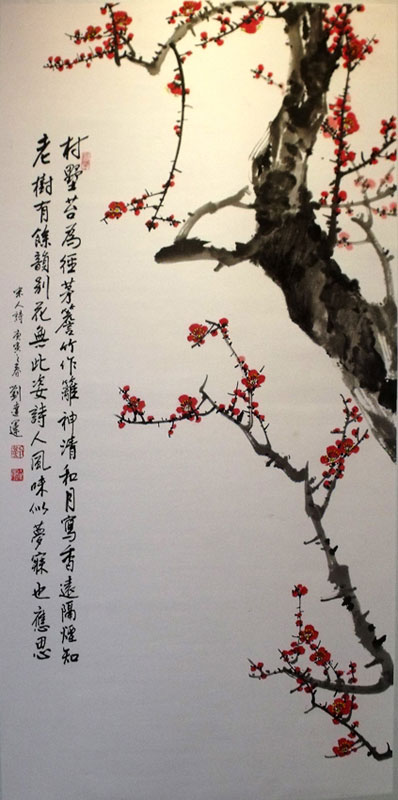 村墅苔為徑茅簷竹作籬神清和月寫香遠隔煙知
老樹有餘韻別花無此姿詩人風味似夢寐也應思
宋人詩 庚寅之春 劉運運